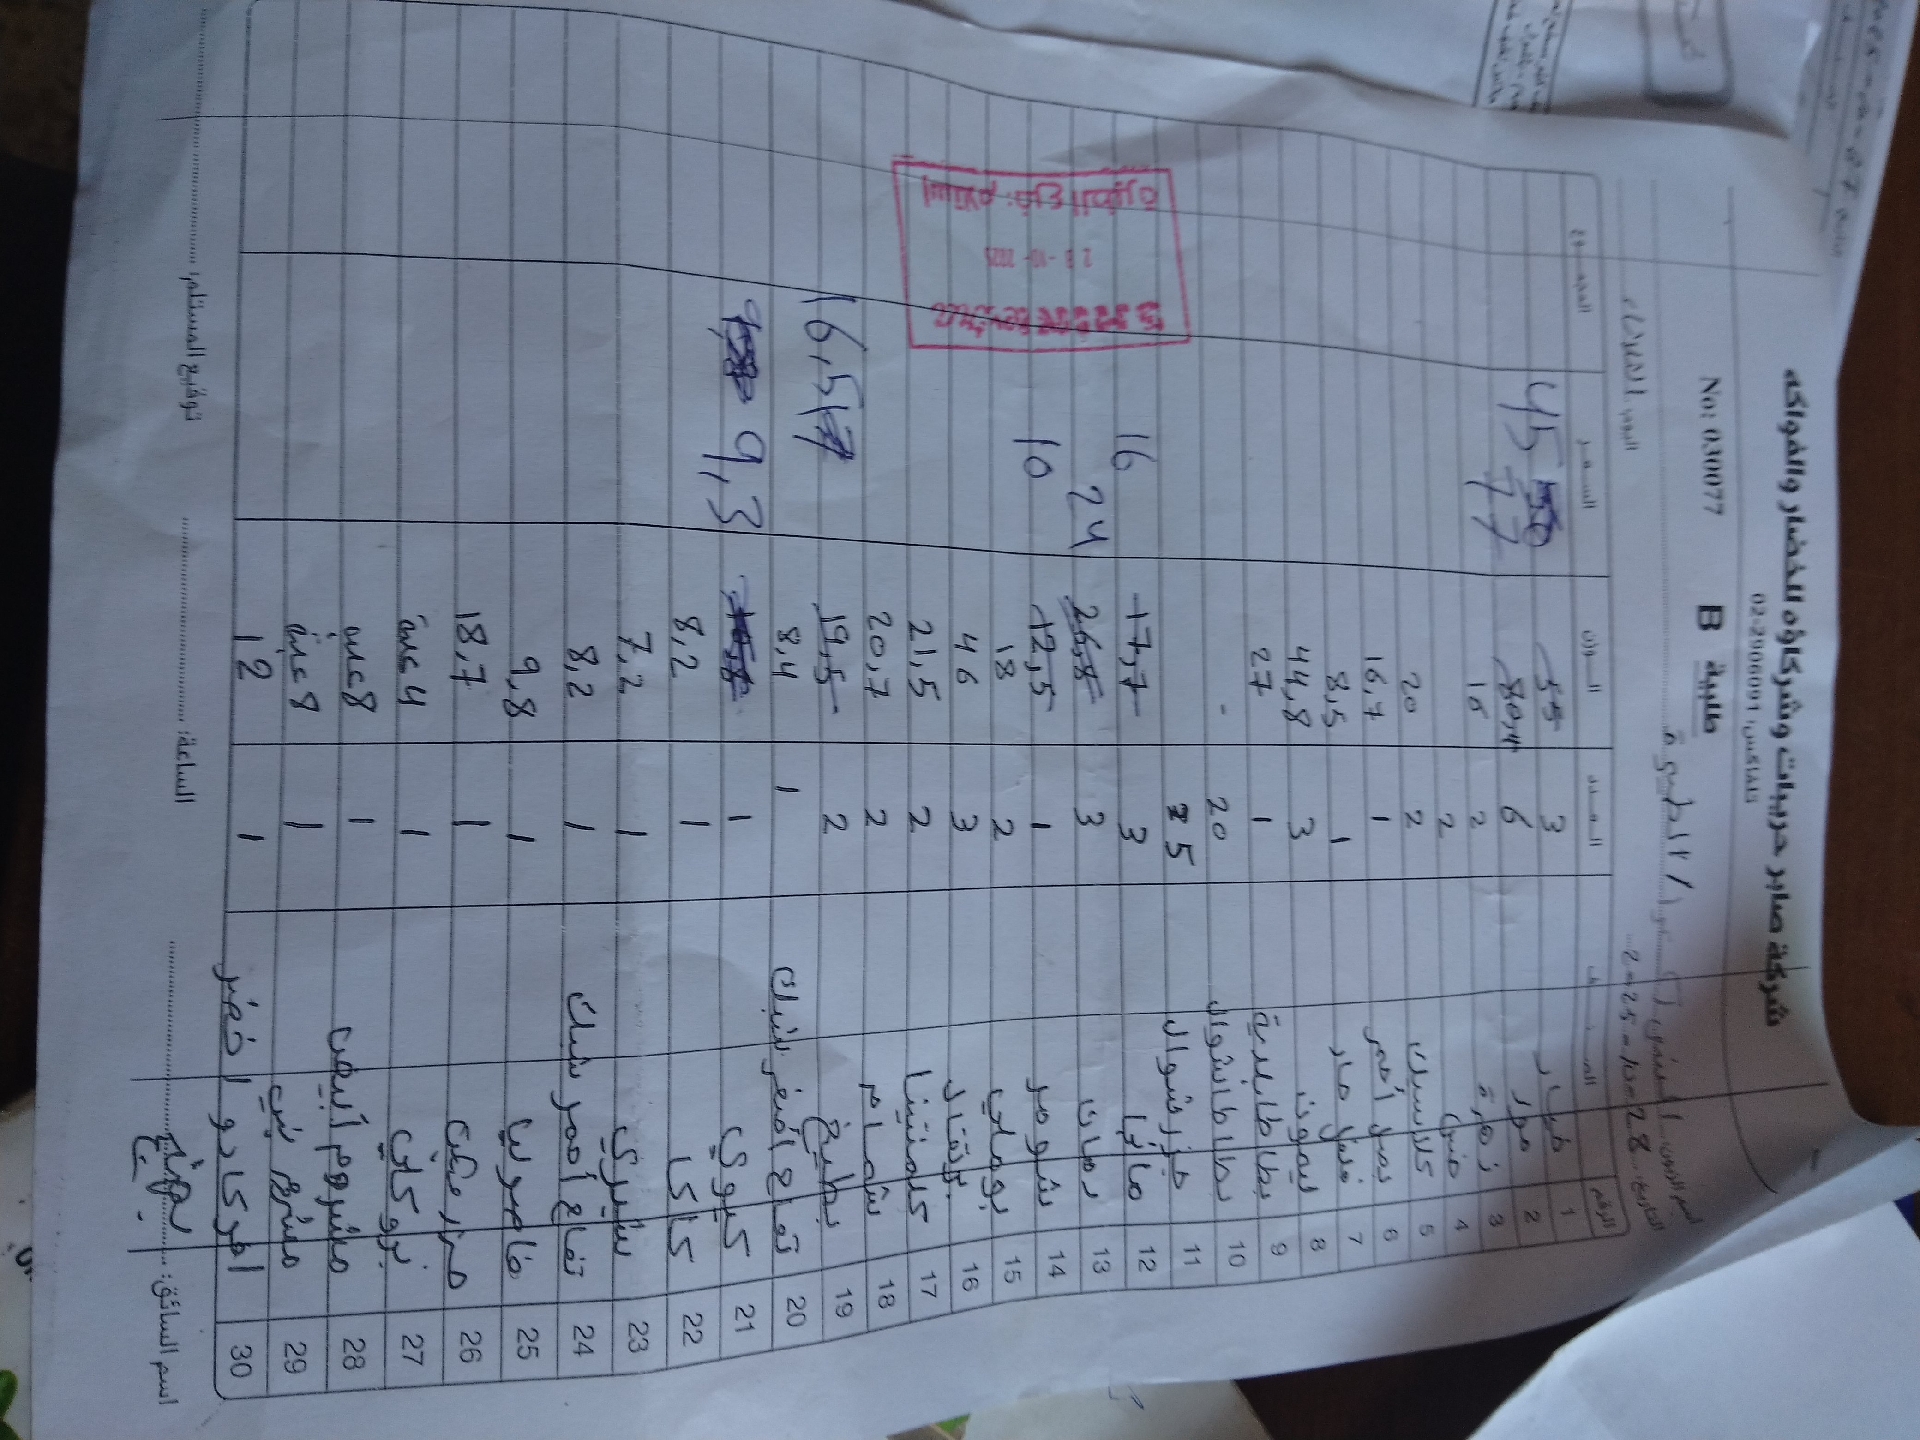 شركة صابر حريبات وشركاؤه للخضار والفواكه
تلفاكس: 02-2906091
No: 030077 طلبية B
اسم الزبون:
اليوم: الثلاثاء التاريخ: 28-10-2025
الرقم الصنف العدد الوزن السعر المجموع
1 خيار 3 55 45 50
2 6 80,4 77
3 زهرة 2 16
4 2
5 2 20
6 بصل أحمر 1 16,7
7 فلفل حار 1 8,5
8 ليمون 3 44,8
9 بطاطا بلدية 1 27
10 بطاطا شوال 20 -
11 جزر شوال 5
12 مانجا 3 17,7 16
13 رمان 3 26,8 24
14 شومر 1 12,5 10
15 بوملي 2 18
16 برتقال 3 46
17 كلمنتينا 2 21,5
18 شمام 2 20,7
19 بطيخ 2 19,5 16,5 17
20 تفاح اصفر شلك 1 8,4
21 كيوي 1 9,3
22 كاكا 1 8,2
23 1 7,2
24 تفاح أحمر شلك 1 8,2
25 فاصوليا 1 9,8
26 1 18,7
27 بروكلي 1 4 علبة
28 مشروم أبيض 1 8 علبة
29 مشروم بني 1 8 علبة
30 افوكادو اخضر 1 12
استلام: فرع
28-10-2025
اسم السائق: الساعة: توقيع المستلم: